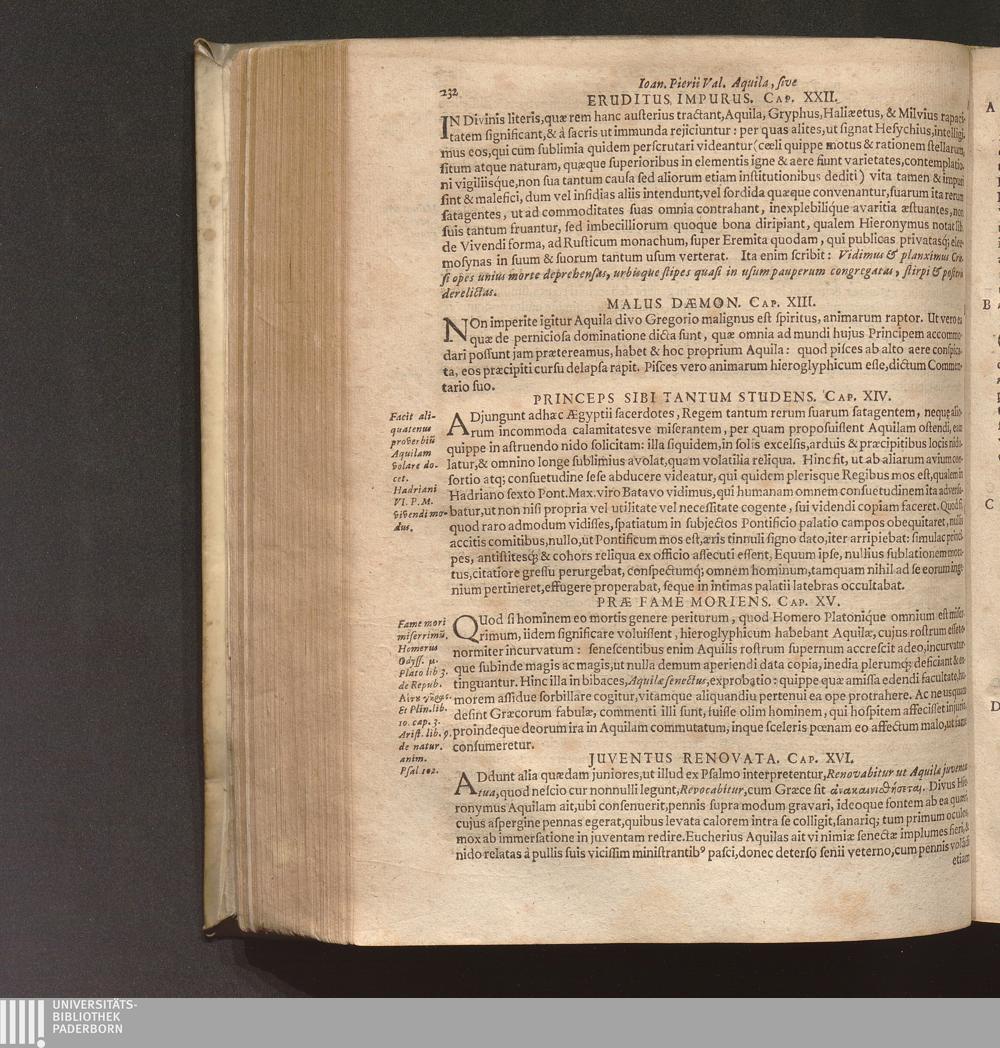 232
Ioan. Pierii Val. Aquila, ſive
ERUDITUS, IMPURUS. CAP. XXII.
IN Divinis literis, quæ rem hanc auſterius tractant, Aquila, Gryphus, Haliæetus, & Milvius rapaci-
tatem ſignificant, & à ſacris ut immunda rejiciuntur : per quas alites, ut ſignat Heſychius, intelligi-
mus eos, qui cùm ſublimia quidem perſcrutari videantur (cœeli quippe motus & rationem ſtellarum,
ſitum atque naturam, quæque ſuperioribus in elementis igne & aere fiunt varietates, contemplatio-
ni vigiliisque, non ſua tantum cauſa ſed aliorum etiam inſtitutionibus dediti) vita tamen & impuri
ſint & malefici, dum vel inſidias aliis intendunt, vel ſordida quæque convenantur, ſuarum ita rerum
ſatagentes, ut ad commoditates ſuas omnia contrahant, inexplebilique avaritia æſtuantes, non
ſuis tantum fruantur, ſed imbecilliorum quoque bona diripiant, qualem Hieronymus notat lib.
de Vivendi forma, ad Ruſticum monachum, ſuper Eremita quodam, qui publicas privatasq; elee-
moſynas in ſuum & ſuorum tantum uſum verterat. Ita enim ſcribit : Vidimus & planximus Crœ-
ſi opes unius morte deprehenſas, urbisque ſtipes quaſi in uſum pauperum congregatas, ſtirpi & poſteris
derelictas.
MALUS DÆMON. CAP. XIII.
NOn imperite igitur Aquila divo Gregorio malignus eſt ſpiritus, animarum raptor. Ut vero ea
quæ de pernicioſa dominatione dicta ſunt, quæ omnia ad mundi hujus Principem accommo-
dari poſſunt jam prætereamus, habet & hoc proprium Aquila : quod piſces ab alto aere conſpica-
ta, eos præcipiti curſu delapſa rapit. Piſces vero animarum hieroglyphicum eſſe, dictum Commen-
tario ſuo.
PRINCEPS SIBI TANTUM STUDENS. CAP. XIV.
Facit ali-
quatenus
proverbiū
Aquilam
volare do-
cet.
Hadriani
VI. P. M.
vivendi mo-
dus.
ADjungunt adhæc Ægyptii ſacerdotes, Regem tantum rerum ſuarum ſatagentem, neque alio-
rum incommoda calamitatesve miſerantem, per quam propoſuiſſent Aquilam oſtendi, eam
quippe in aſtruendo nido ſolicitam : illa ſiquidem, in ſolis excelſis, arduis & præcipitibus locis nidu-
latur, & omnino longe ſublimius avolat, quam volatilia reliqua. Hinc fit, ut ab aliarum avium con-
ſortio atq; conſuetudine ſeſe abducere videatur, qui quidem plerisque Regibus mos eſt, qualem in
Hadriano ſexto Pont. Max. viro Batavo vidimus, qui humanam omnem conſuetudinem ita adverſa-
batur, ut non niſi propria vel utilitate vel neceſſitate cogente, ſui videndi copiam faceret. Quod ſi,
quod raro admodum vidiſſes, ſpatiatum in ſubjectos Pontificio palatio campos obequitaret, nullis
accitis comitibus, nullo, ut Pontificum mos eſt, æris tinnuli ſigno dato, iter arripiebat : ſimulac princi-
pes, antiſtitesq; & cohors reliqua ex officio aſſecuti eſſent, Equum ipſe, nullius ſublationem mora-
tus, citatiore greſſu perurgebat, conſpectumq; omnem hominum, tamquam nihil ad ſe eorum inge-
nium pertineret, effugere properabat, ſeque in intimas palatii latebras occultabat.
PRÆ FAME MORIENS. CAP. XV.
Fame mori
miſerrimū.
Homerus
Odyſſ. μ.
Plato lib 3.
de Repub.
Αἰτοῦ γῆρας.
Et Plin. lib.
10. cap. 3.
Ariſt. lib. 9.
de natur.
anim.
Pſal 102.
QUod ſi hominem eo mortis genere periturum, quod Homero Platonique omnium eſt miſer-
rimum, iidem ſignificare voluiſſent, hieroglyphicum habebant Aquilæ, cujus roſtrum eſſet e-
normiter incurvatum : ſeneſcentibus enim Aquilis roſtrum ſupernum accreſcit adeo, incurvatur-
que ſubinde magis ac magis, ut nulla demum aperiendi data copia, inedia plerumq; deficiant & ex-
tinguantur. Hinc illa in bibaces, Aquilæ ſenectus, exprobatio : quippe quæ amiſſa edendi facultate, hu-
morem aſſidue ſorbillare cogitur, vitamque aliquandiu pertenui ea ope protrahere. Ac ne usquam
deſint Græcorum fabulæ, commenti illi ſunt, fuiſſe olim hominem, qui hoſpitem affeciſſet injuria,
proindeque deorum ira in Aquilam commutatum, inque ſceleris pœnam eo affectum malo, ut fame
conſumeretur.
JUVENTUS RENOVATA. CAP. XVI.
ADdunt alia quædam juniores, ut illud ex Pſalmo interpretentur, Renovabitur ut Aquilæ juventus
tua, quod neſcio cur nonnulli legunt, Revocabitur, cum Græce ſit ἀνακαινισθήσεται. Divus Hie-
ronymus Aquilam ait, ubi conſenuerit, pennis ſupra modum gravari, ideoque fontem ab ea quæri,
cujus aſpergine pennas egerat, quibus levata calorem intra ſe colligit, ſanariq; tum primum oculos,
mox ab immerſatione in juventam redire. Eucherius Aquilas ait vi nimiæ ſenectæ implumes fieri, &
nido relatas à pullis ſuis viciſſim miniſtrantibꝰ paſci, donec deterſo ſenii veterno, cum pennis volādi
etiam
A
B
C
D
UNIVERSITÄTS-
BIBLIOTHEK
PADERBORN